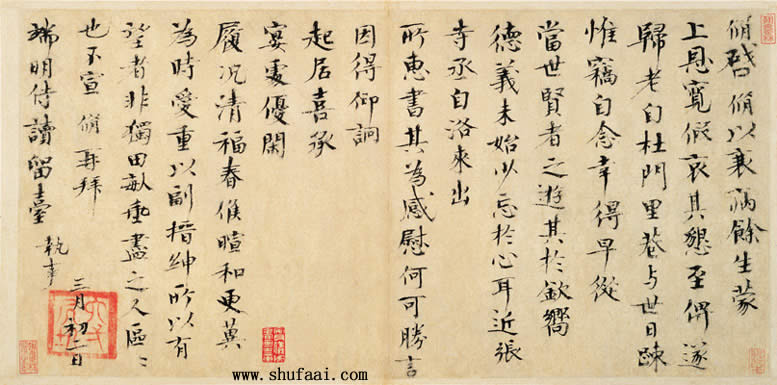 脩啓脩以衰病餘生蒙
上恩寬假哀其懇至俾遂
歸老自杜門里巷与世日踈
惟竊自念幸得早從
當世賢者之遊其於欽嚮
德義未始少忘於心耳近張
寺丞自洛來出
所惠書其為感慰何可勝言
因得仰詗
起居喜承
宴處優閑
履况清福春候暄和更冀
為時愛重以副搢紳所以有
望者非獨田畝垂盡之人區〻
也不宣 脩再拜
端明侍讀留臺 執事
三月初二日
www.shufaai.com